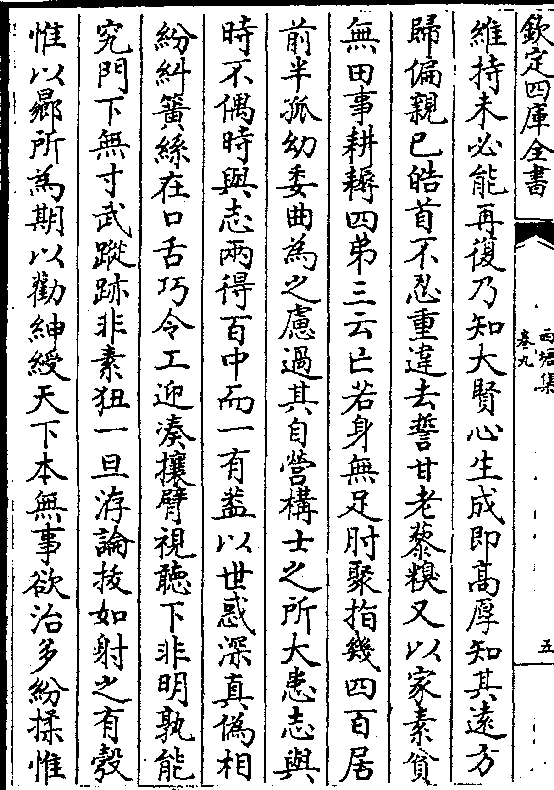 欽定四庫全書
西塘集
卷九
五
維持未必能再復乃知大賢心生成即高厚知其遠方
歸偏親已皓首不忍重違去誓甘老藜糗又以家素貧
無田事耕耨四弟三云亡若身無足肘聚指幾四百居
前半孤幼委曲為之慮過其自營構士之所大患志與
時不偶時與志兩得百中而一有葢以世惑深真偽相
紛糾簧絲在口舌巧令工迎湊攘臂視聽下非明孰能
究門下無寸武蹤跡非素狃一旦㳺論抜如射之有彀
惟以鄉所為期以勸紳綬天下本無事欲治多紛揉惟